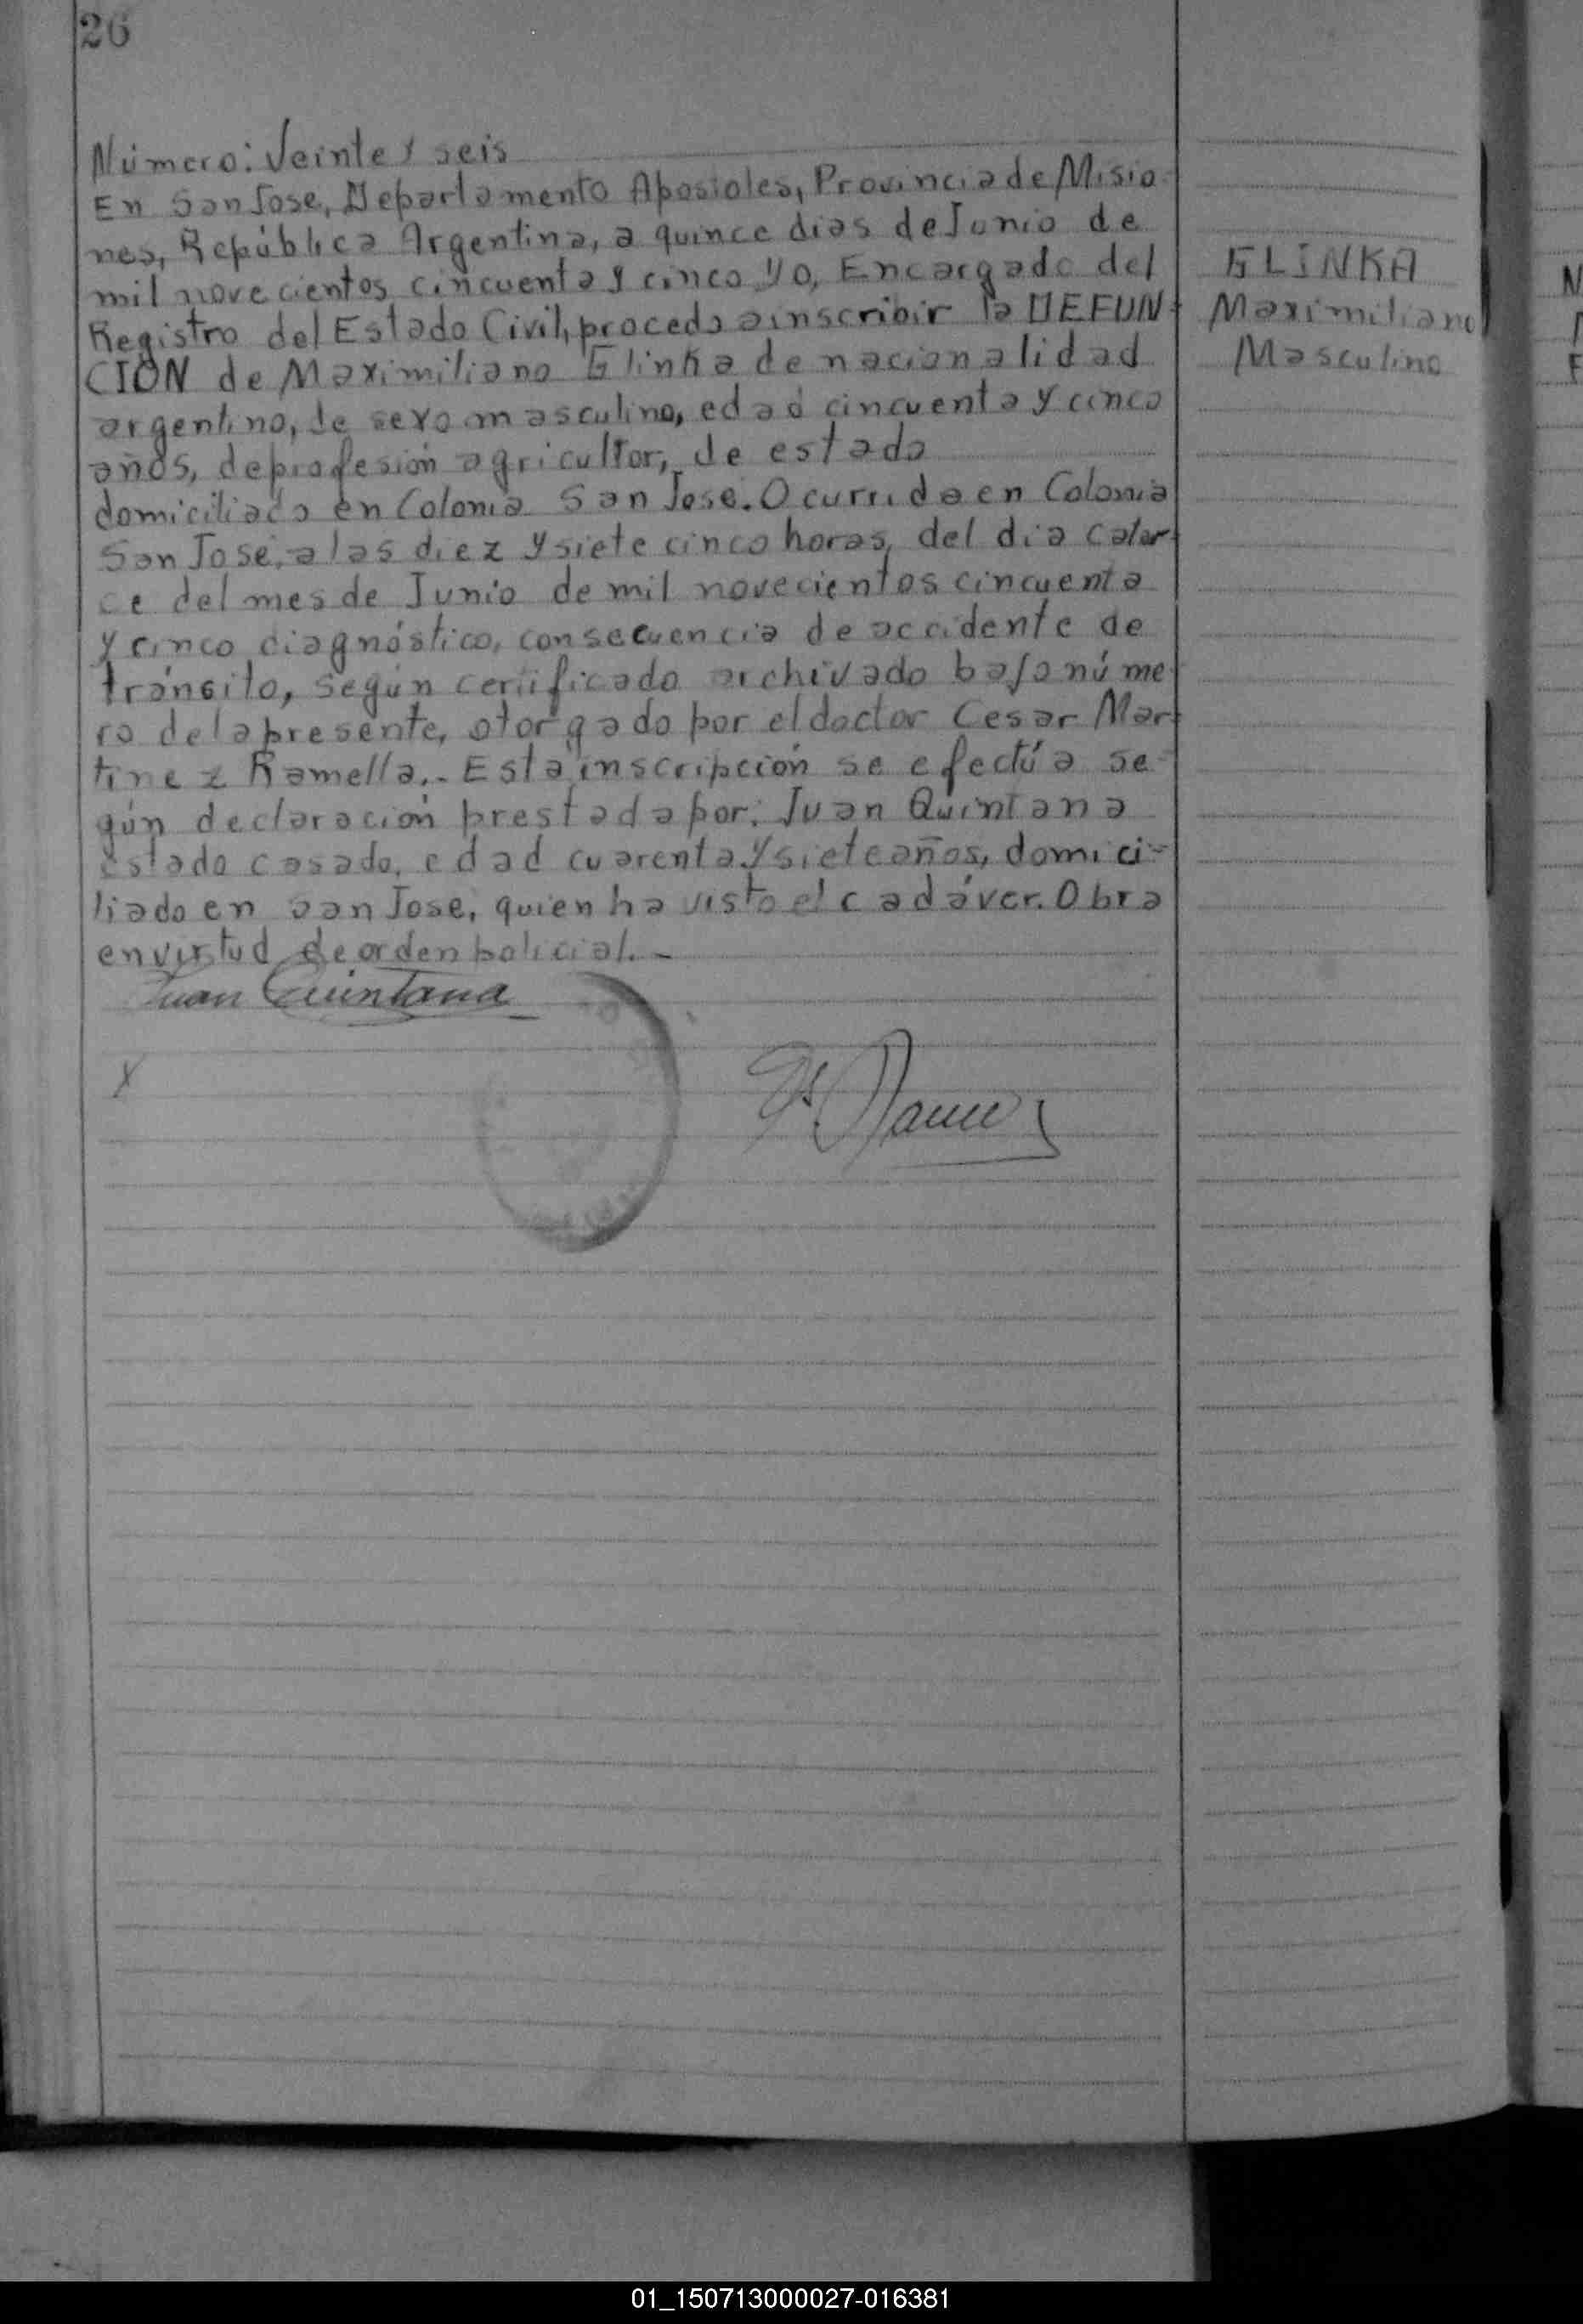 26
Número: Veinte y seis
En San Jose, Departamento Apostoles, Provincia de Misio-
nes, República Argentina, a quince dias de Junio de
mil novecientos cincuenta y cinco yo, Encargado del
Registro del Estado Civil, procedo a inscribir la DEFUN-
CION de Maximiliano Glinka de nacionalidad
argentino, de sexo masculino, edad cincuenta y cinco
años, de profesión agricultor, de estado
domiciliado en Colonia San Jose. Ocurrida en Colonia
San José, a las diez y siete cinco horas, del dia cator-
ce del mes de Junio de mil novecientos cincuenta
y cinco diagnóstico, consecuencia de accidente de
tránsito, según certificado archivado bajo núme-
ro de la presente, otorgado por el doctor Cesar Mar-
tinez Ramella.- Esta inscripción se efectúa se-
gún declaración prestada por: Juan Quintana
estado casado, edad cuarenta y siete años, domici-
liado en San Jose, quien ha visto el cadáver. Obra
en virtud de orden policial.-
Juan Quintana
X
GLINKA
Maximiliano
Masculino
01_150713000027-016381